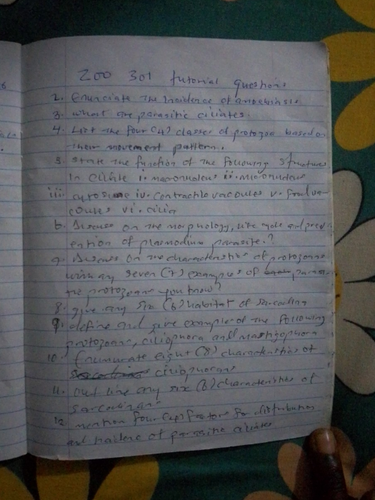 ZOO 301 tutorial questions
2. Enunciate the incidence of
3. What are parasitic ciliates?
4. List the four (4) classes of protozoa based on
their movement pattern.
5. State the function of the following structures
in ciliate i. macronucleus ii. micronucleus
iii. cytosome iv. contractile vacuoles v. food va-
cuoles vi. cilia
6. Discuss on the morphology, life cycle and prev
ention of plasmodium parasite?
7. Discuss on the characteristics of protozoans
seven (7) examples of
protozoan you know?
8. give any six (6) habitat of sarcodina
9. define and give example of the following
protozoans, ciliophora and mastigophora
10. Enumerate eight (8) characteristics of
ciliophorans
11. Out line any six (6) characteristics of
Sarcodinans
12. mention four (4) factors for distribution
and nature of parasitic ciliates